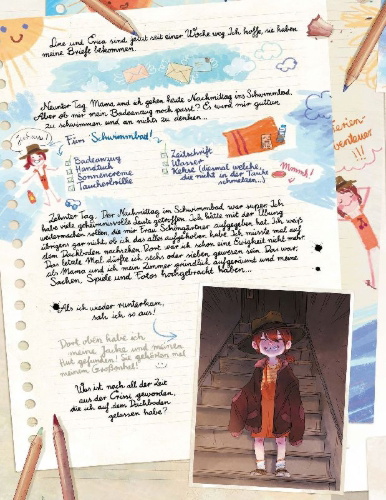 Line und Enea sind jetzt seit einer Woche weg. Ich hoffe, sie haben
meine Briefe bekommen.
Neunter Tag. Mama und ich gehen heute Nachmittag ins Schwimmbad.
Aber ob mir mein Badeanzug noch passt? Es wird mir guttun
zu schwimmen und an nichts zu denken...
Fürs Schwimmbad!
Badeanzug
Handtuch
Sonnencreme
Taucherbrille
Zeitschrift
Wasser
Kekse (diesmal welche,
die nicht in der Tasche
schmelzen...)
Mmmh!
Zehnter Tag. Der Nachmittag im Schwimmbad war super. Ich
habe viele geheimnisvolle Leute getroffen. Ich hätte mit der Übung
weitermachen sollen, die mir Frau
aufgegeben hat. Ich weiß
übrigens gar nicht, ob ich das alles aufgehoben habe. Ich müsste mal auf
dem Dachboden nachsehen. Dort war ich schon eine Ewigkeit nicht mehr.
Das letzte Mal dürfte ich sechs oder sieben gewesen sein. Das war,
als Mama und ich mein Zimmer gründlich aufgeräumt und meine
Sachen, Spiele und Fotos hochgebracht haben...
Als ich wieder runterkam,
sah ich so aus!
Dort oben habe ich
meine Jacke und meinen
Hut gefunden! Sie gehörten mal
meinem Großonkel!
Was ist nach all der Zeit
aus der Cerise geworden,
die ich auf dem Dachboden
gelassen habe?